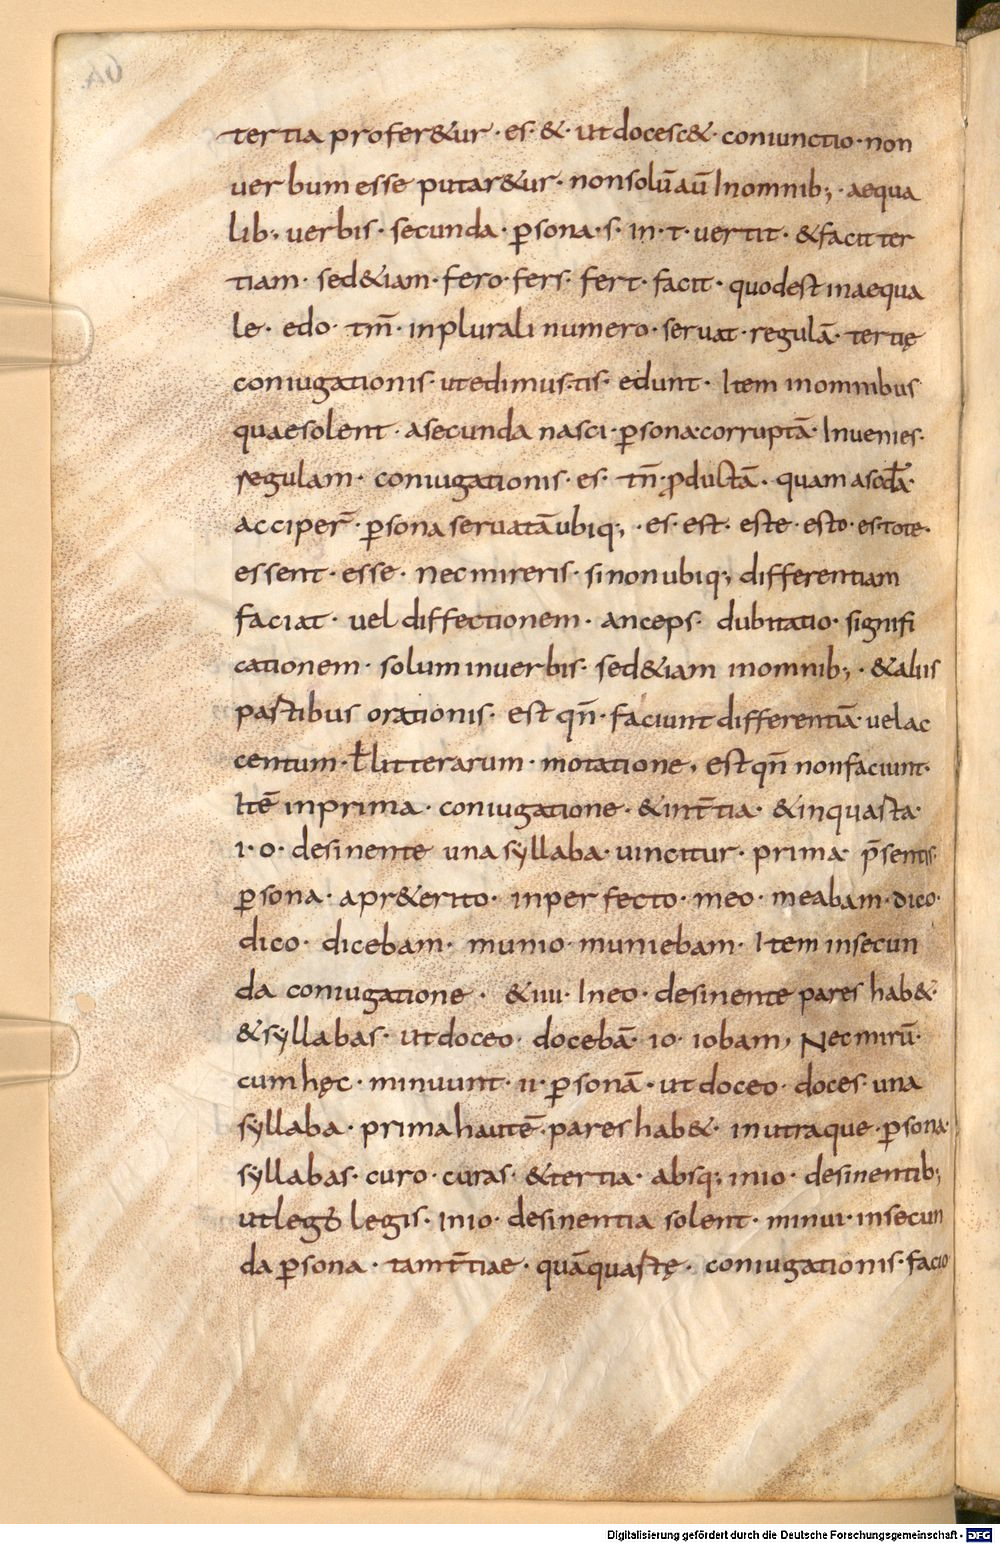 tertia profer&ur · es · & · ut docesc& · coniunctio · non
uerbum esse putar&ur · non solū aū In omnib; · aequa
lib; uerbis · secunda · p̲sona · s · in · t · uertit · & facit ter
tiam · sed &iam · fero · fers · fert · facit · quod est inaequa
le · edo · tm̄ · in plurali numero · seruat · regulā · tertię
coniugationis · ut edimus · tis · edunt · Item in omnibus
quae solent · a secunda nasci · p̲sona · corruptā · Inuenies ·
regulam · coniugationis · es · tn̄ · ꝓductā · quam a scđa ·
acciper̄ · p̲sona seruatā ubiq; · es · est · este · esto · estote ·
essent · esse · Nec mireris · si non ubiq; differentiam
faciat · uel diffectionem · anceps · dubitatio · signifi
cationem · solum in uerbis · sed &iam in omnib; · & aliis
partibus orationis · est qn̄ · faciunt differentiā · uel ac
centum · ł litterarum · motatione, est qn̄ non faciunt ·
Itē in prima · coniugatione · & in t̄tia · & in quarta ·
i · o · desinente una syllaba · uincitur · prima p̄sentis ·
p̲sona · a pr&erito · inperfecto · meo · meabam · dico ·
dico · dicebam · munio muniebam · Item in secun
da coniugatione · & iiii · In eo · desinente pares hab& ·
& syllabas · ut doceo · docebā · io · iobam, Nec mirū ·
cum hęc · minuunt · ii · p̲sonā · ut doceo · doces · una
syllaba · prima h autē · pares hab& · in utraque · p̲sona ·
syllabas · curo · curas · & tertia · absq; in io · desinentib;
ut lego legis · In io · desinentia solent · minui · in secun
da p̲sona · tam t̄tiae · quā quartę · coniugationis · facio
Digitalisierung gefördert durch die Deutsche Forschungsgemeinschaft - DFG